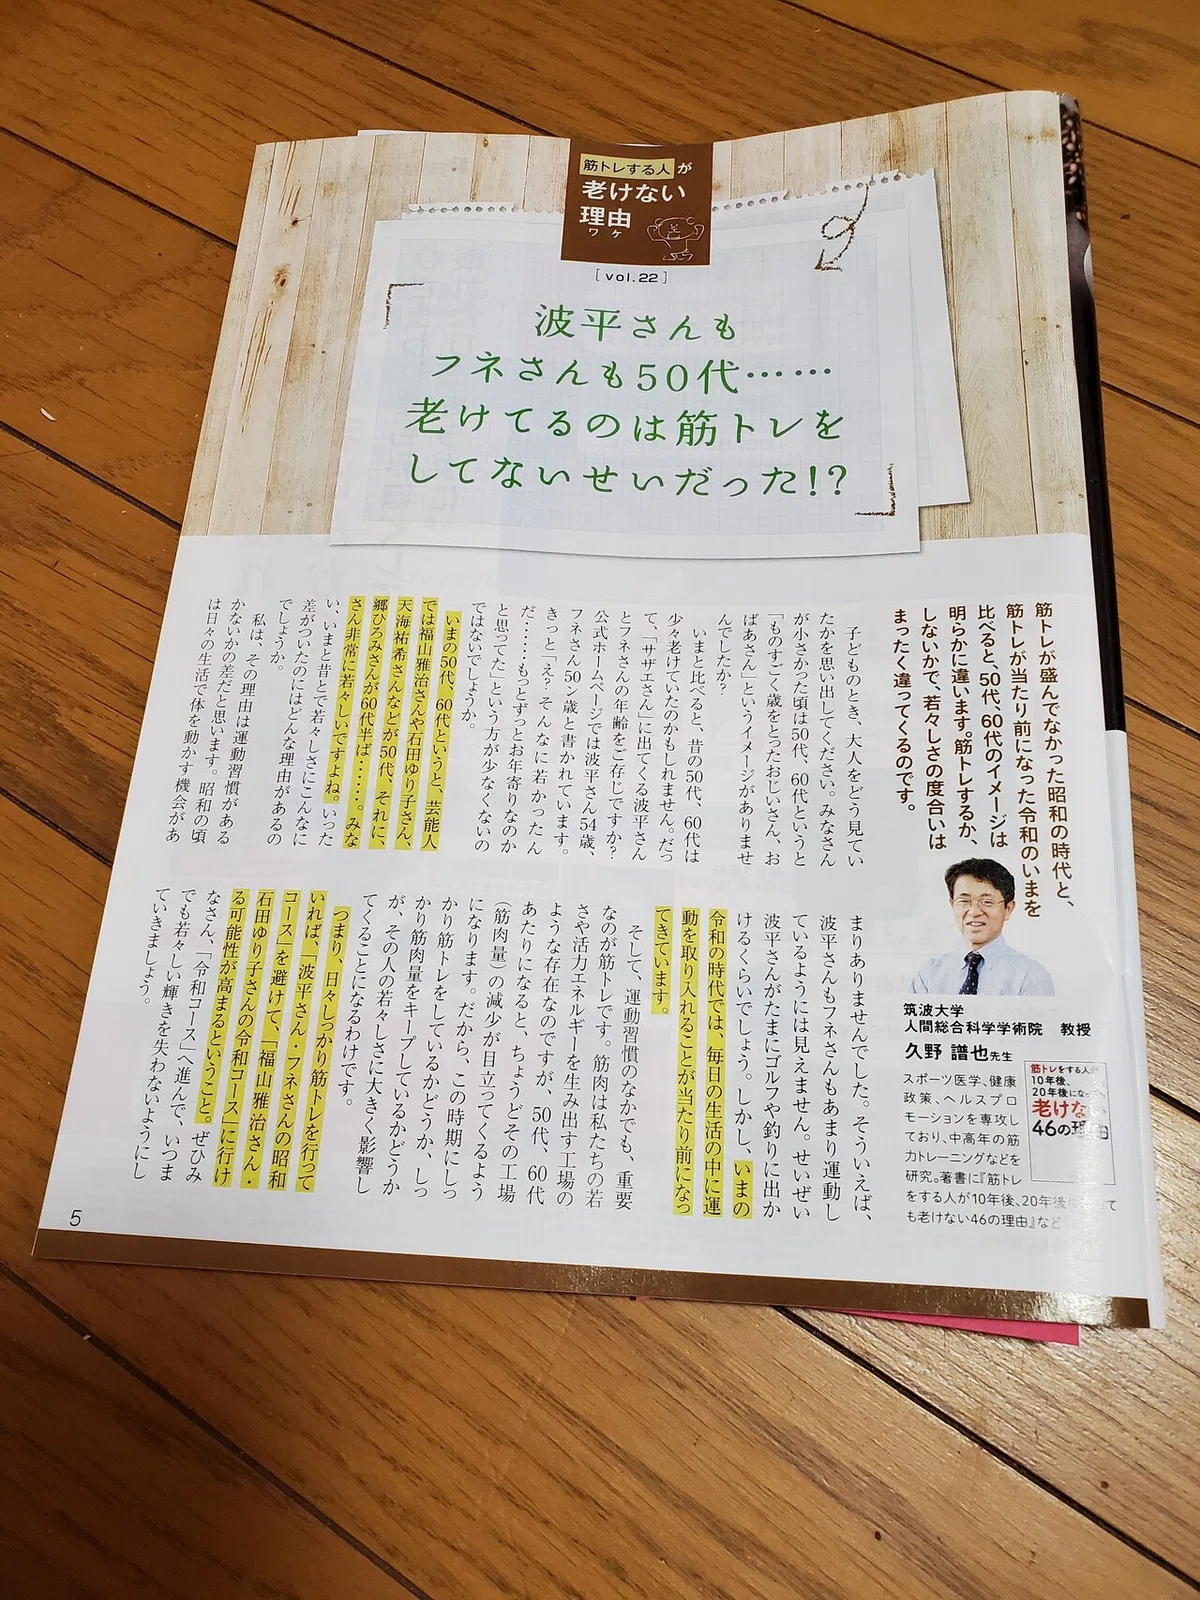 筋トレする人が
老けない
理由
ワケ
[vol.22]
波平さんも
フネさんも50代……
老けてるのは筋トレを
してないせいだった!?
筋トレが盛んでなかった昭和の時代と、
筋トレが当たり前になった令和のいまを
比べると、50代、60代のイメージは
明らかに違います。筋トレするか、
しないかで、若々しさの度合いは
まったく違ってくるのです。
筑波大学
人間総合科学学術院 教授
久野 譜也先生
スポーツ医学、健康
政策、ヘルスプロ
モーションを専攻し
ており、中高年の筋
力トレーニングなどを
研究。著書に『筋トレ
をする人が10年後、20年後になって
も老けない46の理由』など
筋トレをする人が
10年後、
20年後になっ
老けな
46の理由
子どものとき、大人をどう見てい
たかを思い出してください。みなさん
が小さかった頃は50代、60代というと
「ものすごく歳をとったおじいさん、お
ばあさん」というイメージがありませ
んでしたか?
いまと比べると、昔の50代、60代は
少々老けていたのかもしれません。だっ
て、「サザエさん」に出てくる波平さん
とフネさんの年齢をご存じですか?
公式ホームページでは波平さん54歳、
フネさん50ン歳と書かれています。
きっと「え?そんなに若かったん
だ……もっとずっとお年寄りなのか
と思ってた」という方が少なくないの
ではないでしょうか。
いまの50代、60代というと、芸能人
では福山雅治さんや石田ゆり子さん、
天海祐希さんなどが50代、それに、
郷ひろみさんが60代半ば……。みな
さん非常に若々しいですよね。いった
い、いまと昔とで若々しさにこんなに
差がついたのにはどんな理由があるの
でしょうか。
私は、その理由は運動習慣がある
かないかの差だと思います。昭和の頃
は日々の生活で体を動かす機会があ
まりありませんでした。そういえば、
波平さんもフネさんもあまり運動し
ているようには見えません。せいぜい
波平さんがたまにゴルフや釣りに出か
けるくらいでしょう。しかし、いまの
令和の時代では、毎日の生活の中に運
動を取り入れることが当たり前になっ
てきています。
そして、運動習慣のなかでも、重要
なのが筋トレです。筋肉は私たちの若
さや活力エネルギーを生み出す工場の
ような存在なのですが、50代、60代
あたりになると、ちょうどその工場
(筋肉量)の減少が目立ってくるよう
になります。だから、この時期にしっ
かり筋トレをしているかどうか、しっ
かり筋肉量をキープしているかどうか
が、その人の若々しさに大きく影響し
てくることになるわけです。
つまり、日々しっかり筋トレを行って
いれば、「波平さん・フネさんの昭和
コース」を避けて、「福山雅治さん・
石田ゆり子さんの令和コース」に行け
る可能性が高まるということ。ぜひみ
なさん、「令和コース」へ進んで、いつま
でも若々しい輝きを失わないようにし
ていきましょう。
5